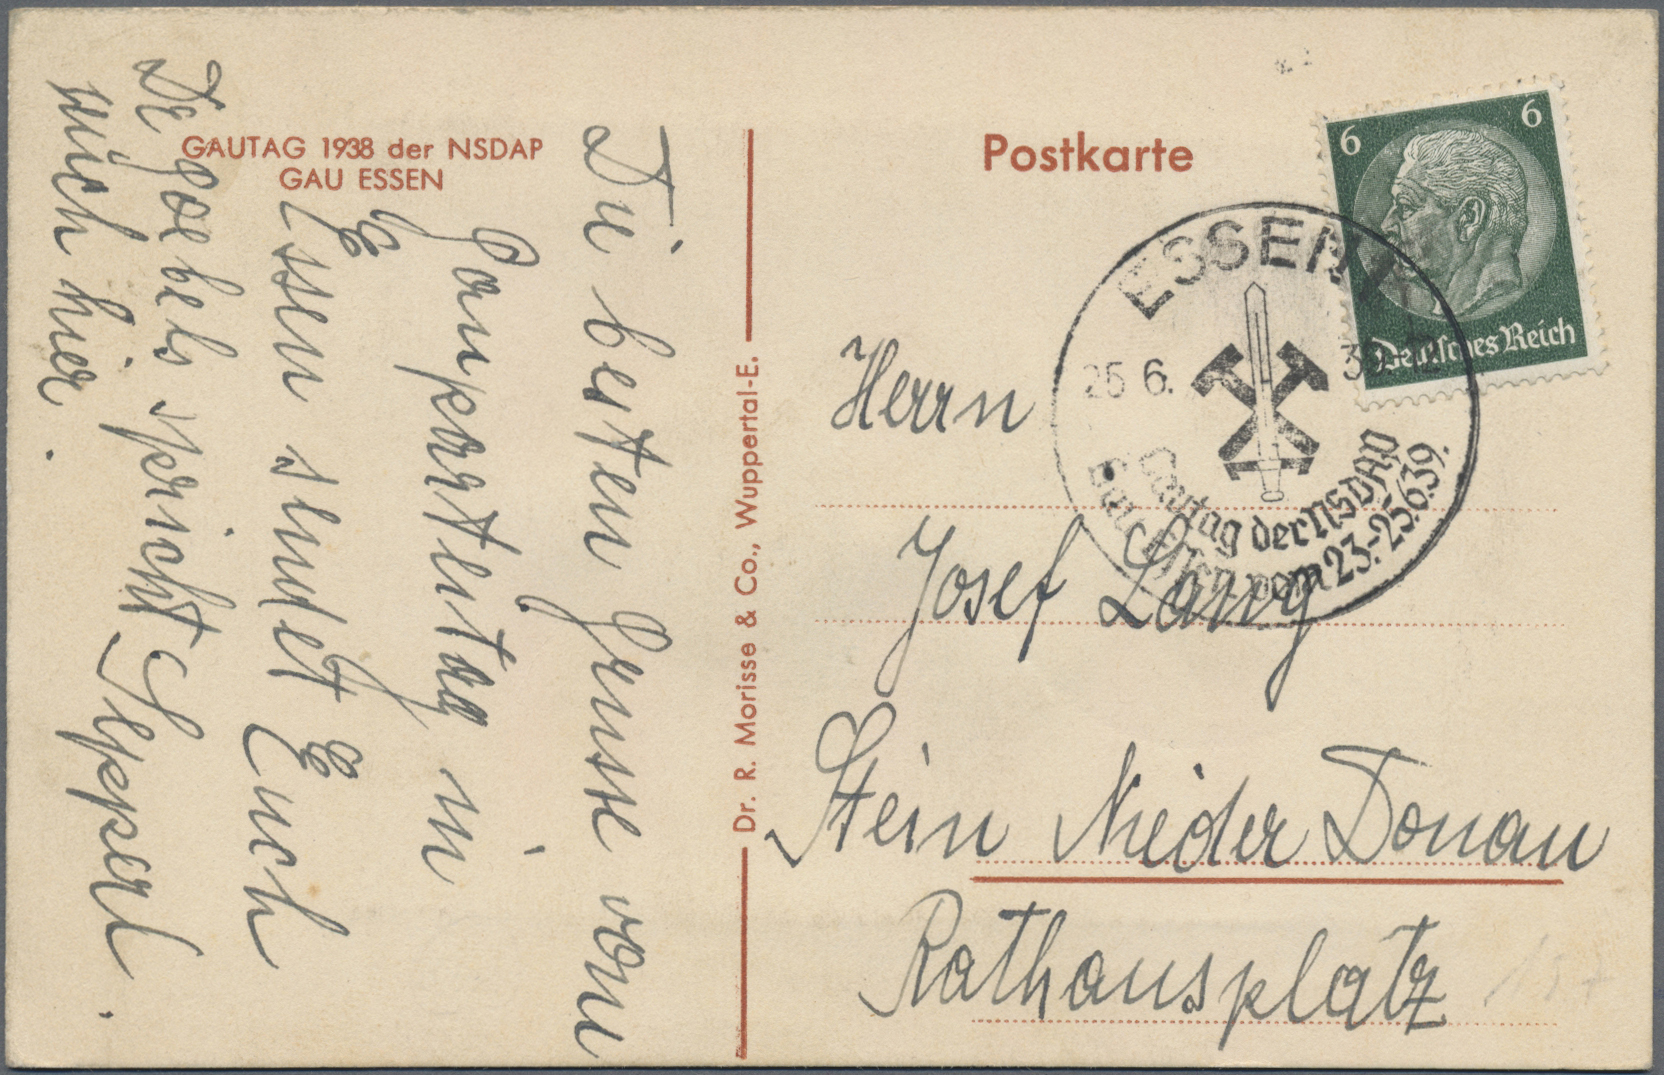 GAUTAG 1938 der NSDAP
GAU ESSEN
Die besten Grüsse vom
Gauparteitag in
Essen sendet Euch
Sepperl.
Dr Goebels spricht
auch hier.
Dr. R. Morisse & Co., Wuppertal-E.
Postkarte
6 6
Deutsches Reich
ESSEN 1
25 6. 39
Gautag der NSDAP
Gau Essen vom 23.-25.6.39.
Herrn
Josef Lang
Stein Nieder Donau
Rathausplatz